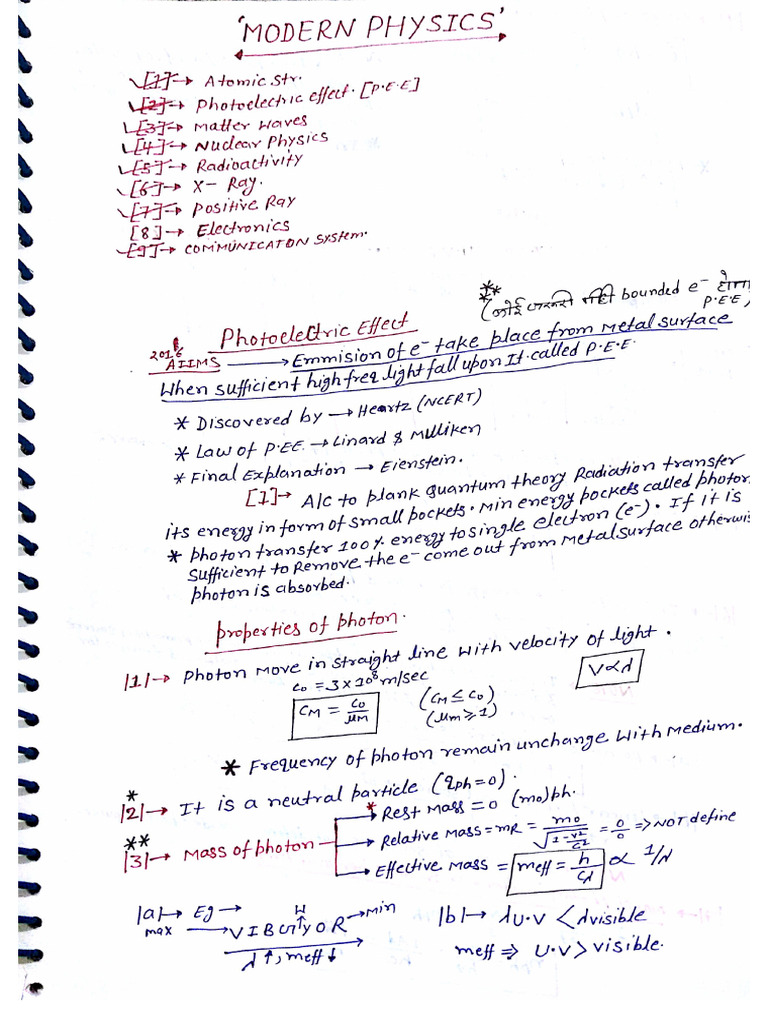 'MODERN PHYSICS'
[1]→ Atomic Str.
[2]→ Photoelectric effect. [P.E.E]
[3]→ Matter Waves
[4]→ Nuclear Physics
[5]→ Radioactivity
[6]→ X- Ray.
[7]→ Positive Ray
[8]→ Electronics
[9]→ COMMUNICATON System.
** (कोई जरूरी नहीं bounded e⁻ होगा P.E.E)
Photoelectric Effect
2016 AIIMS → Emmision of e⁻ take place from Metal surface
When sufficient high freq light fall upon It called P.E.E.
* Discovered by → Heartz (NCERT)
* Law of P.EE. → Linard & Milliken
* Final Explanation → Eienstein.
[1]→ A/C to plank quantum theory Radiation transfer
its energy in form of small pockets. Min energy pockets called photon
* photon transfer 100% energy to single electron (e⁻). If it is
Sufficient to Remove the e⁻ come out from Metal surface otherwis
photon is absorbed.
properties of photon.
|1|→ Photon Move in straight line with velocity of light.
C₀ = 3 × 10⁸ m/sec
V∝λ
C_M = C₀/μ_M (C_M ≤ C₀)
(μ_m ⩾ 1)
* Frequency of photon remain unchange with Medium.
*
|2|→ It is a neutral particle (q_ph = 0).
* Rest Mass = 0 (m₀)ph.
**
|3|→ Mass of photon → Relative Mass = m_R = m₀/√(1-v²/c²) = 0/0 => NOT define
→ Effective Mass = meff = h/Cλ ∝ 1/λ
|a|→ Eg → |b|→ λU.V < λvisible
max → V I B G Y O R → Min
W
λ↑, meff↓ meff ⇒ U.V > visible.